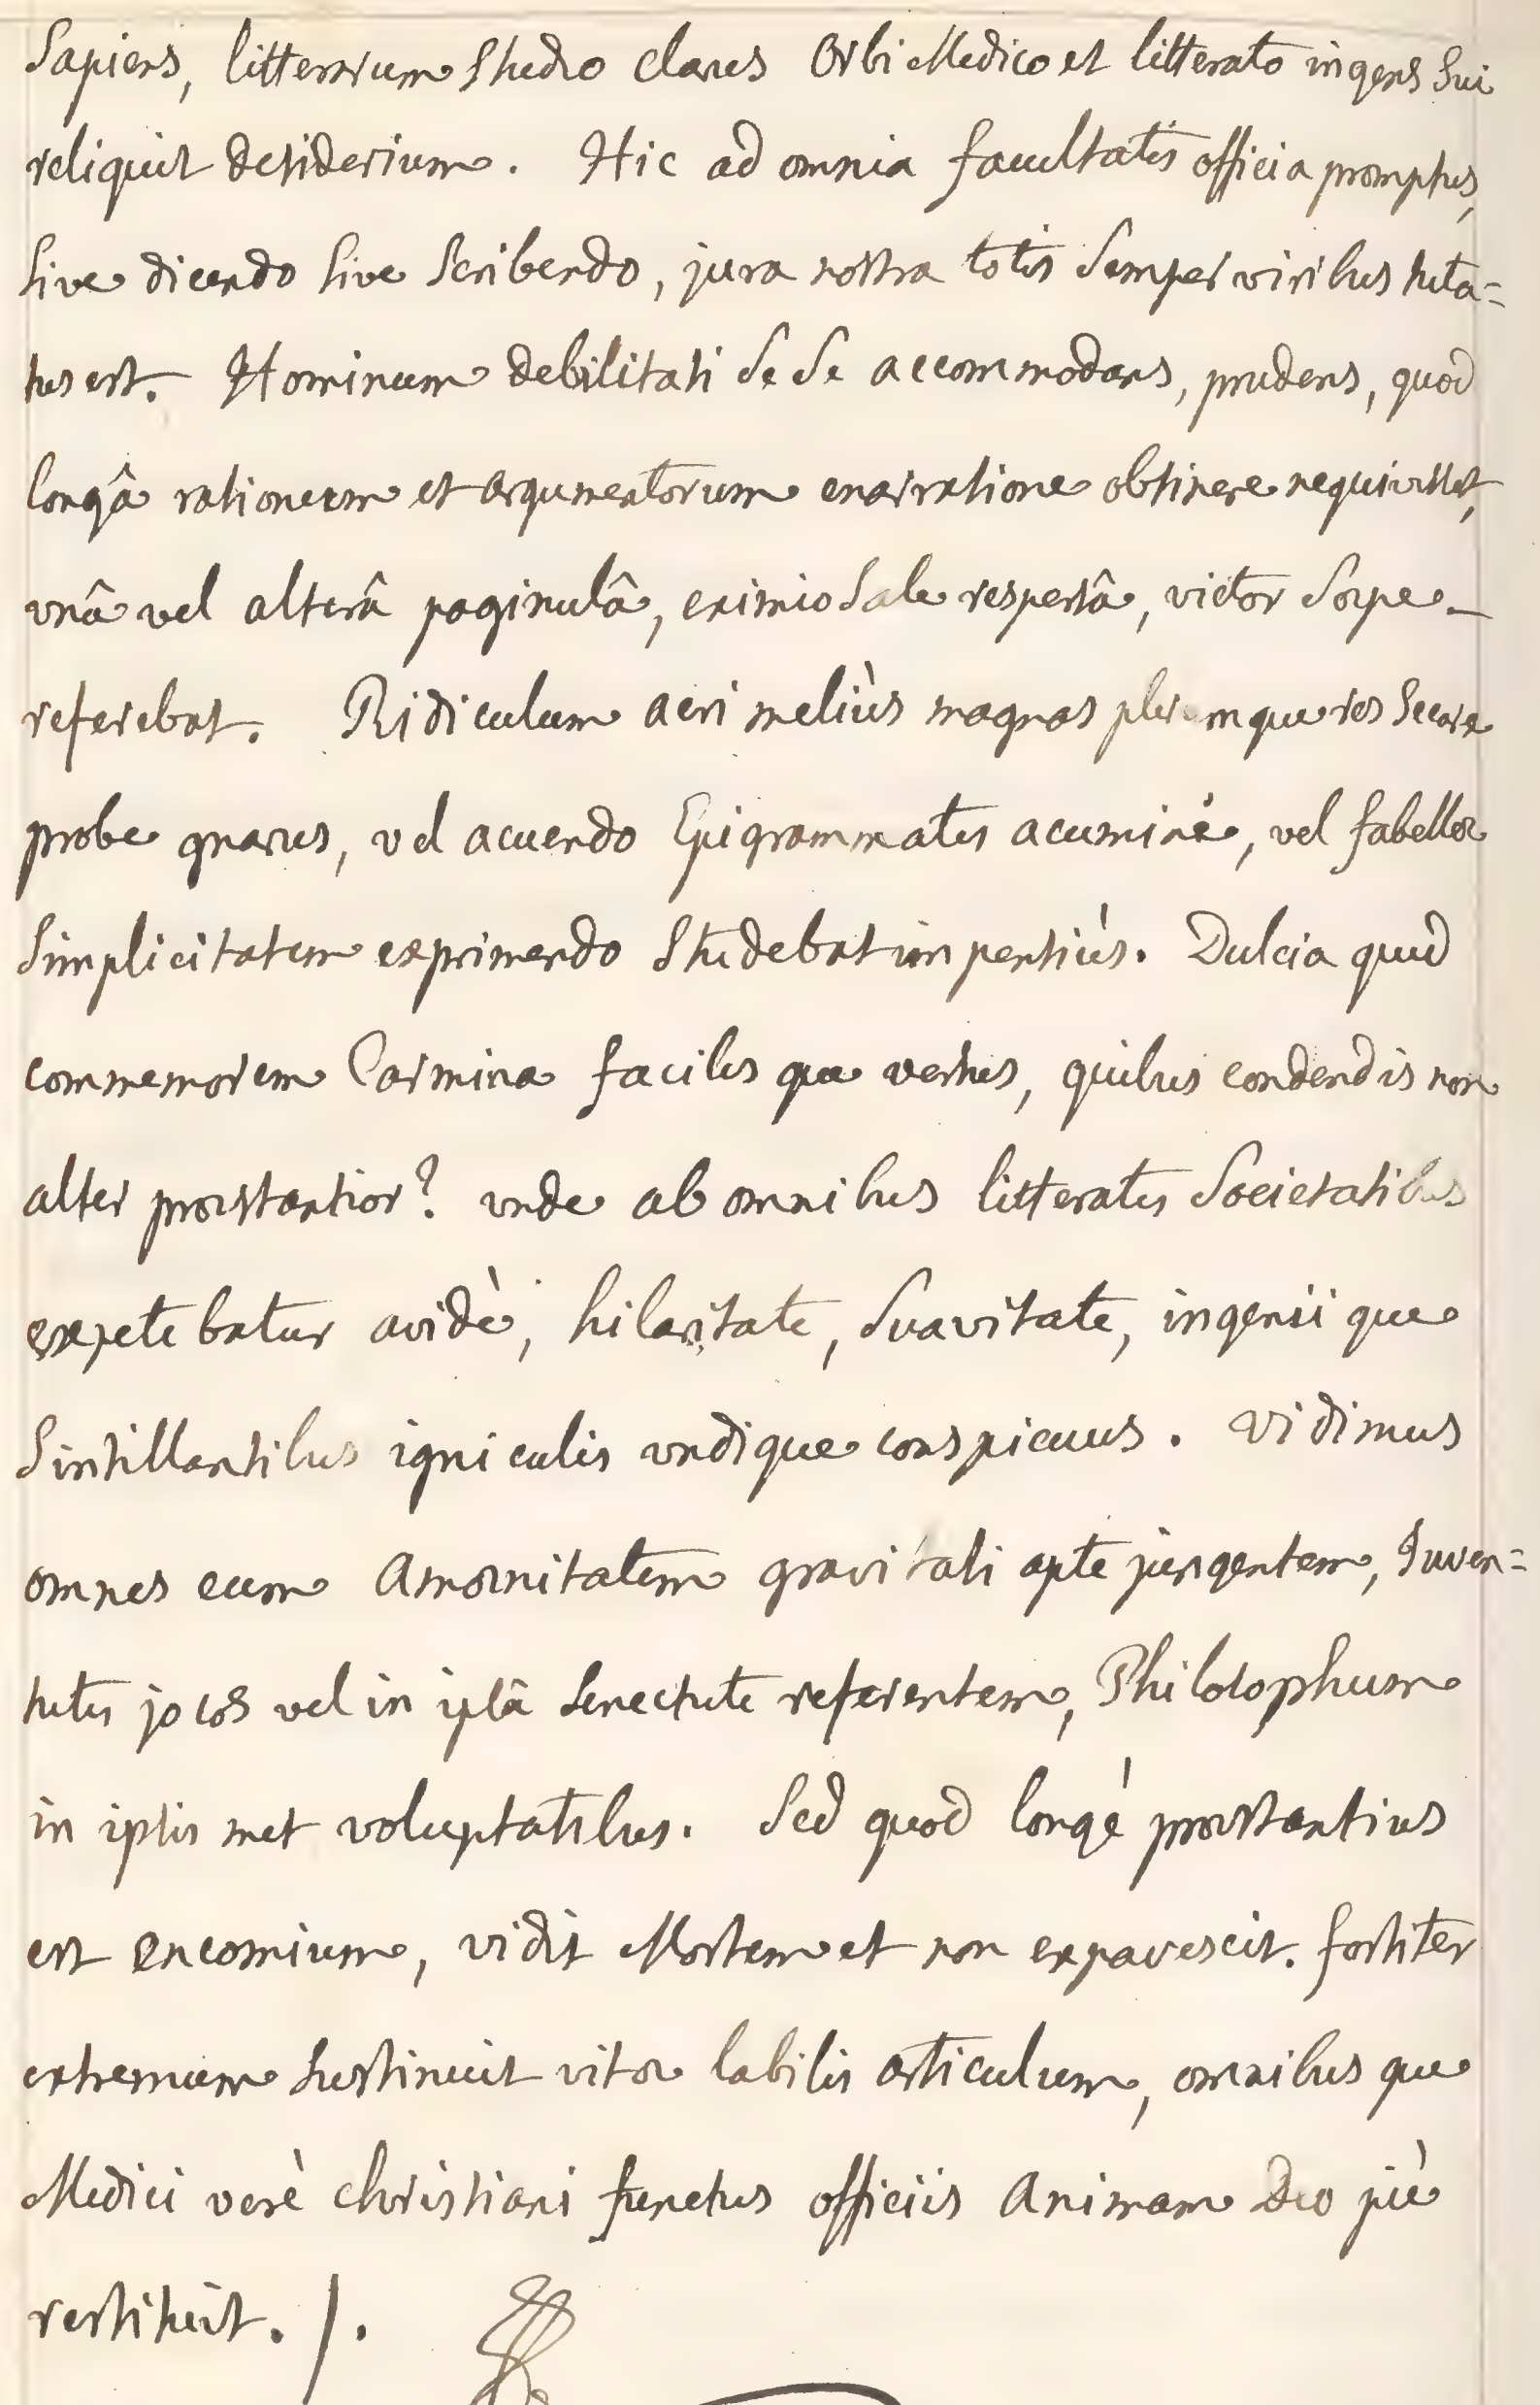 Sapiens, litterarum Studio clarus Orbi Medico et litterato ingens Sui
reliquit desiderium. Hic ad omnia facultatis officia promptus,
Sive dicendo Sive Scribendo, jura nostra totis Semper viribus tuta=
tus est. Hominum debilitati Se Se accommodans, prudens, quod
longâ rationum et argumentorum enarratione obtinere nequivisset,
vnâ vel alterâ paginulâ, eximio Sale respersâ, victor Sæpe
referebat. Ridiculum acri meliùs magnas plerumque res Secare
probe gnarus, vel acuendo Epigrammatis acumine, vel fabellæ
Simplicitatem exprimendo Studebat impensiùs. Dulcia quid
commemorem Carmina facilis que versus, quibus condendis non
alter præstantior? vnde ab omnibus litteratis Societatibus
expetebatur avidè, hilaritate, Suavitate, ingenii que
Sintillantibus igniculis vndique conspicuus. Vidimus
omnes eum Amœnitatem gravitati apte jungentem, Juven=
tutis jocos vel in ipsâ Senectute referentem, Philosophum
in ipsis met voluptatibus. Sed quod longè præstantius
est encomium, vidit Mortem et non expavescit. fortiter
extremum Sustinuit vitæ labilis articulum, omnibus que
Medici verè christiani functus officiis Animam Deo piè
restituit. /.